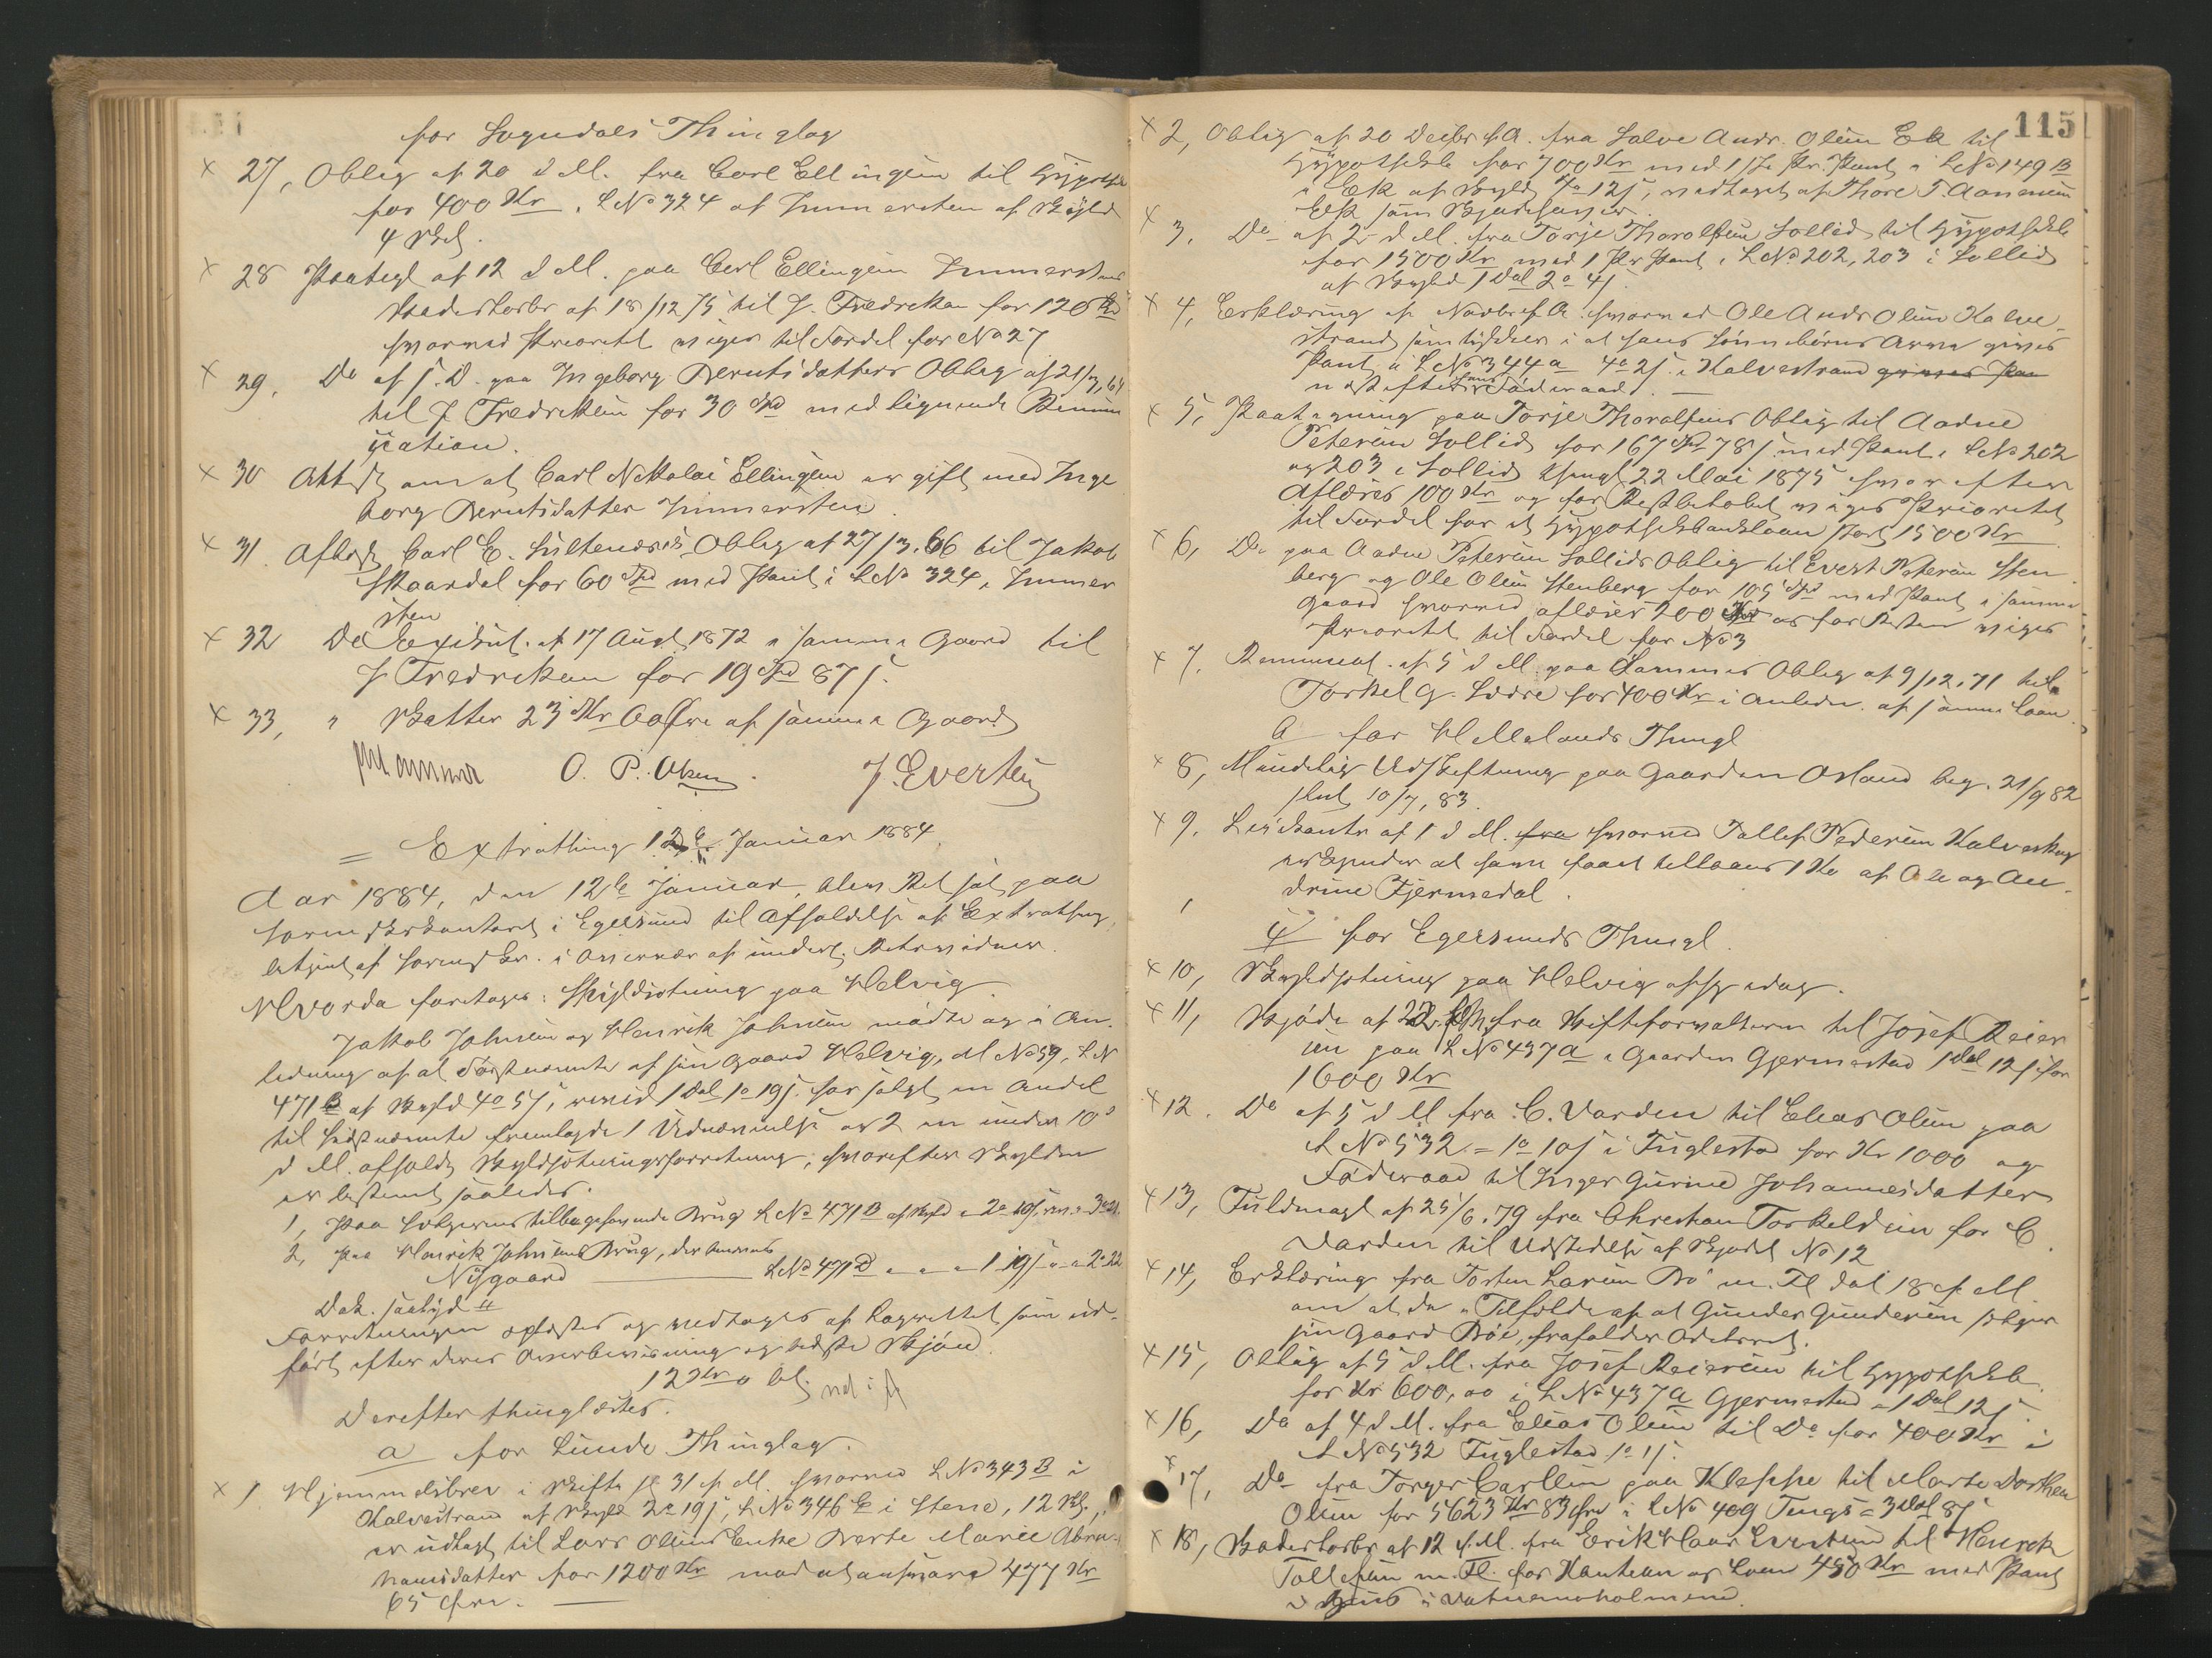 for Sogndals Thinglag
x 27, Oblig af 20 d M. fra Carl Ellingsen til Hypothb
for 400 Kr i LNo 324 af Immersten af Skyld
4 Skl.
x 28 Paategn af 12 d M. paa Carl Ellingsen Immerstens
Skadesløsbr af 18/12 75 til J. Fredriksen for 120 Spd
hvorved Prioritet viges til Fordel for No 27
x 29. Do af s. D. paa Ingeborg Berntsdatters Oblig af 21/3,64
til J Fredriksen for 30 Spd med lignende Renun
ciation.
x 30 Attest om at Carl Nikolai Ellingsen er gift med Inge
borg Berntsdatter Immersten
x 31. Aflyst Carl E. Oblig af 27/3.66 til Jakob
Skaardal for 60 Spd med Pant i LNo 324, Immer
sten
x 32 Do Exkut. af 17 Augt 1872 i samme Gaard til
J Fredriksen for 19 Spd 87 s.
x 33, " Skatter 23 Kr 00 Øre af samme Gaard
O. P. Olsen. J. Evertsen
= Extrathing 12te Januar 1884.
Aar 1884, den 12te Januar, blev Ret sat paa
Sorenskrkontoret i Egersund til Afholdelse af Extrathing,
betjent af Sorenskr. i Overvær af undert. Retsvidner.
Hvorda foretoges: Skyldsetning paa Helvig.
Jakob Johnsen og Henrik Johnsen mødte og i An-
ledning af at Førstnævnte af sin Gaard Helvig, M No 59, LN
471 B af Skyld 4o 5 s, revid 1 Dal 1o 19 s. har solgt en Andel
til Sidstnævnte fremlagde 1 Udnævnelse og 2 en under 10de
d M. afholdt Skyldsætningsforretning, hvorefter Skylden
er bestemt saaledes.
1, Paa Sælgerens tilbagehavende Brug LNo 471 B af Skyld - 2o 10 s rev. 3o 21.
2, paa Henrik Johnsens Brug, der benævnes
Nygaard — LNo 471 D - - - 1 19 s - - 2o 22
Dok. saalyd
Forretningen oplæstes og vedtoges af Lagrettet som ud-
ført efter deres Overbevisning og bedste Skjøn.
12 Kr
Derefter thinglæstes.
a for Lunde Thinglag.
x 1 Hjemmelsbrev i Skifte sl. 31 f. M. hvorved LNo 343 B i
Kalvestrand af Skyld 2o 19 s, LNo 346 C i Stene, 12 Skl.,
er udlagt til Lars Olsens Enke Berte Marie Abra-
hamsdatter for 1200 Kr mod at ansvare 477 Kr
65 Øre.
115
x 2, Oblig af 20 Decbr f.A. fra Salve Andr. Olsen Ek til
Hypothekb for 700 Kr med 1ste Pr. Pant i LNo 149 B
i Ek af Skyld 12 s, vedtaget af Thore T. Aanensen
Eek som
x 3. Do af 2 d M. fra Torje Thorolfsen Sollid til Hypothekb
for 1500 Kr med 1 Pr Pant i LNo 202, 203 i Sollid
af Skyld 1 Dal 2o 4 s.
x 4, Erklæring af Novbr f A hvorved Ole Andr Olsen Kalve-
strand samtykker i at hans Sønnebørns Arv gives
Pant i LNo 344 a 4o 2 s. i Kalvestrand
næstefter hans Føderaad.
x 5, Paategning paa Torje Thorolfsens Oblig til Aadne
Petersen Sollid for 167 Spd 78 s med Pant i LNo 202
og 203 i Sollid thingl 22 Mai 1875 hvorefter
aflæses 100 Kr og for Restbeløbet viges Prioritet
til Fordel for et Hypothekbanklaan stort 1500 Kr
x 6, Do paa Aadne Petersen Sollids Oblig til Evert Petersen Sten
berg og Ole Olsen Stenberg for 105 Spd med Pant i samme
Gaard hvorved aflæses 200 Kr og for Resten viges
Prioritet til Fordel for No 3
x 7. Renunciat. af 5 d M. paa Sammes Oblig af 9/12.71 til
Torkel G. for 400 Kr i Anledn. af samme Laan.
a for Hellelands Thingl
x 8, Mindelig Udskiftning paa Gaarden beg. 21/9 82
slut 10/7, 83.
x 9. af 1 d M. hvorved Tollef Pedersen Kalveskog
erkjender at have faaet tillaans 1 Ko af Ole og An-
drine Fjermedal.
for Egersunds Thingl.
x 10, Skyldsetning paa Helvig afhj. idag.
x 11, Skjøde af 22 f M fra Skifteforvalteren til Josef Reier
sen paa LNo 437 a i Gaarden Gjermestad 1 Dal 12 s for
1600 Kr
x 12. Do af 5 d M fra C. Varden til Elias Olsen paa
LNo 532 = 1o 10 s i Fuglestad for Kr 1000 og
Føderaad til Inger Gurine Johannesdatter
x 13, Fuldmagt af 25/6.79 fra Christian Torkeldsen for C.
Varden til Udstedelse af Skjødet No 12
x 14, Erklæring fra Torsten Larsen Bø m. Fl dat 18 f. M
om at de i Tilfælde af at Gunder Gundersen sælger
sin Gaard Bøe, frafalder Odelsret.
x 15, Oblig af 5 d M. fra Josef Reiersen til Hypothekb.
for Kr 600,00 i LNo 437 a Gjermestad = 1 Dal 12 s.
x 16, Do af 4 d M. fra Elias Olsen til Do for 400 Kr i
LNo 532 Fuglestad 1o 1 s.
x 17, Do fra Torger Carlsen paa Kleppe til Marte Dorthea
Olsen for 5623 Kr 83 Øre i LNo 409 Tengs = 3 Dal 8 s
x 18, Skadesløsbr af 12 f. M. fra Erik Haar Evertsen til Henrik
Tollefsen m. Fl. for Kaution og Laan 450 Kr med Pant
i Huus i